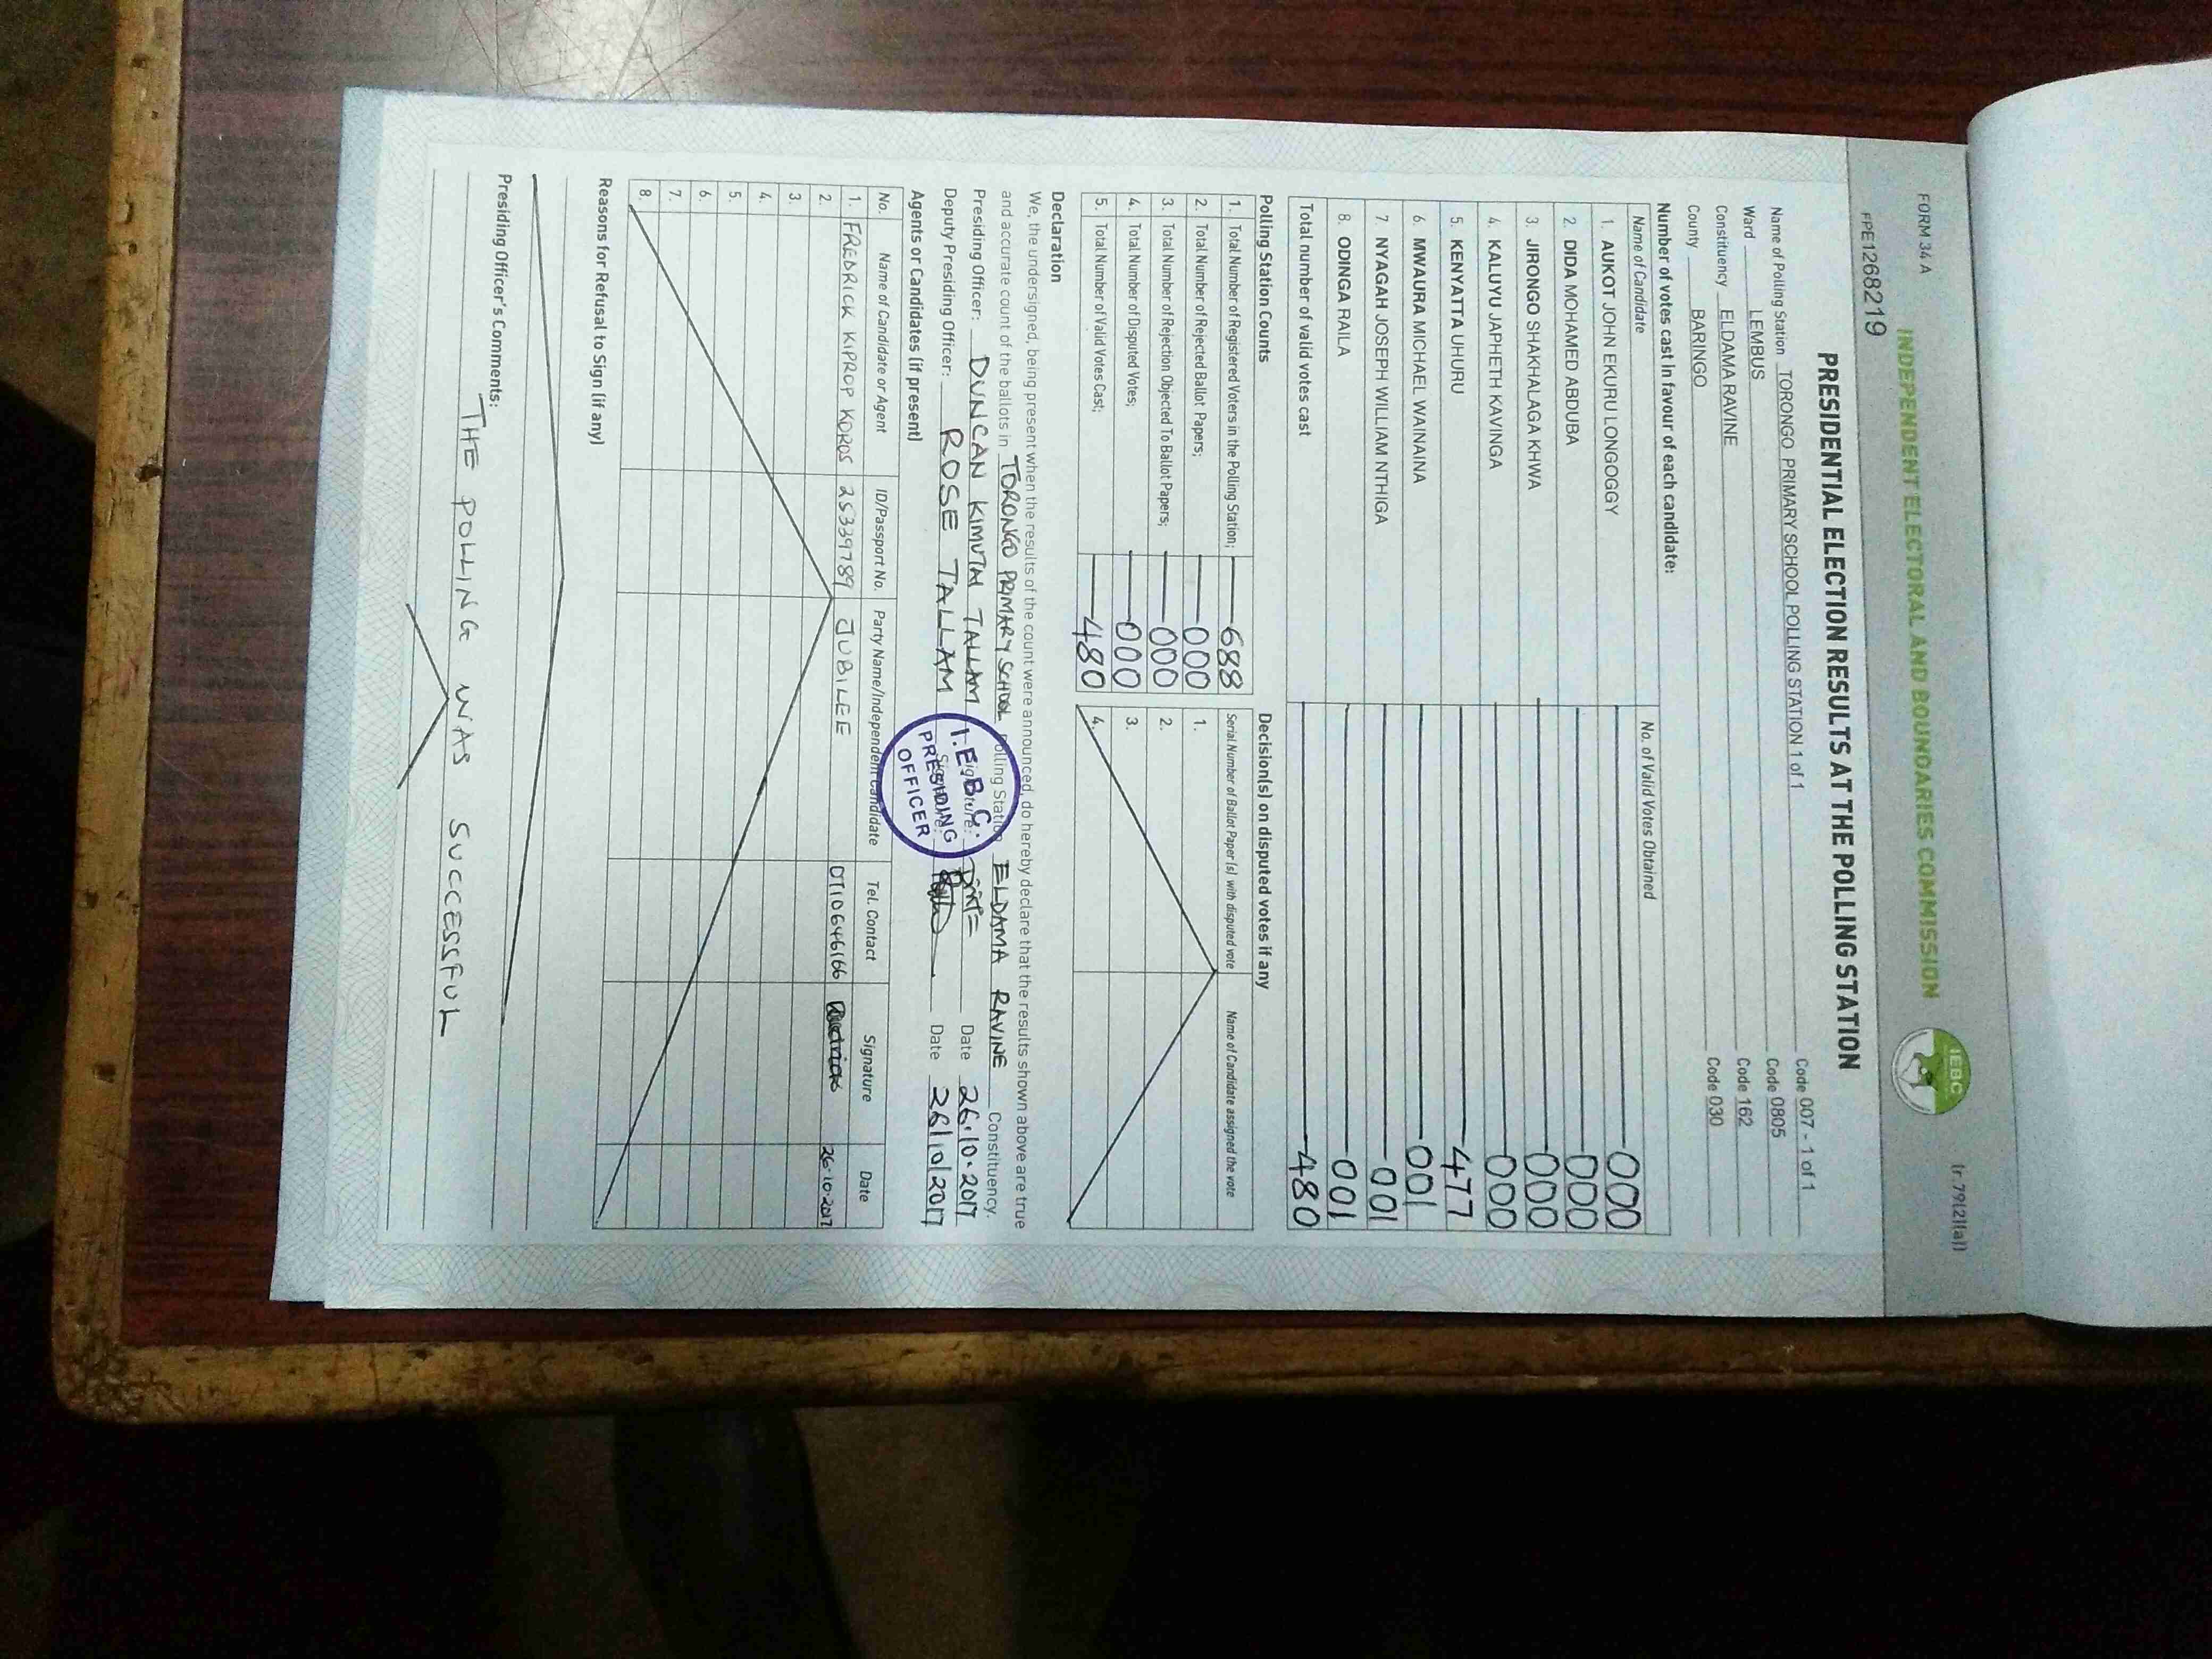 FORM 34 A
(r.79(2)(a))
INDEPENDENT ELECTORAL AND BOUNDARIES COMMISSION
IEBC
FPE1268219
PRESIDENTIAL ELECTION RESULTS AT THE POLLING STATION
Name of Polling Station TORONGO PRIMARY SCHOOL POLLING STATION 1 of 1 Code 007 - 1 of 1
Ward LEMBUS Code 0805
Constituency ELDAMA RAVINE Code 162
County BARINGO Code 030
Number of votes cast in favour of each candidate:
Name of Candidate No. of Valid Votes Obtained
1. AUKOT JOHN EKURU LONGOGGY 000
2. DIDA MOHAMED ABDUBA 000
3. JIRONGO SHAKHALAGA KHWA 000
4. KALUYU JAPHETH KAVINGA 000
5. KENYATTA UHURU 477
6. MWAURA MICHAEL WAINAINA 001
7 NYAGAH JOSEPH WILLIAM NTHIGA 001
8. ODINGA RAILA 001
Total number of valid votes cast 480
Polling Station Counts Decision(s) on disputed votes if any
Serial Number of Ballot Paper(s) with disputed vote Name of Candidate assigned the vote
1. Total Number of Registered Voters in the Polling Station; 688 1.
2. Total Number of Rejected Ballot Papers; 000 2.
3. Total Number of Rejection Objected To Ballot Papers; 000 3.
4. Total Number of Disputed Votes; 000 4.
5. Total Number of Valid Votes Cast; 480
Declaration
We, the undersigned, being present when the results of the count were announced, do hereby declare that the results shown above are true
and accurate count of the ballots in TORONGO PRIMARY SCHOOL Polling Station ELDAMA RAVINE Constituency.
Presiding Officer: DUNCAN KIMUTAI TALLAM Signature: Date 26.10.2017
Deputy Presiding Officer: ROSE TALLAM Signature: Date 26/10/2017
I.E.B.C.
PRESIDING
OFFICER
Agents or Candidates (if present)
No. Name of Candidate or Agent ID/Passport No. Party Name/Independent Candidate Tel. Contact Signature Date
1. FREDRICK KIPROP KOROS 25339789 JUBILEE 0710646166 26.10.2017
2.
3.
4.
5.
6.
7.
8.
Reasons for Refusal to Sign (if any)
Presiding Officer's Comments:
THE POLLING WAS SUCCESSFUL